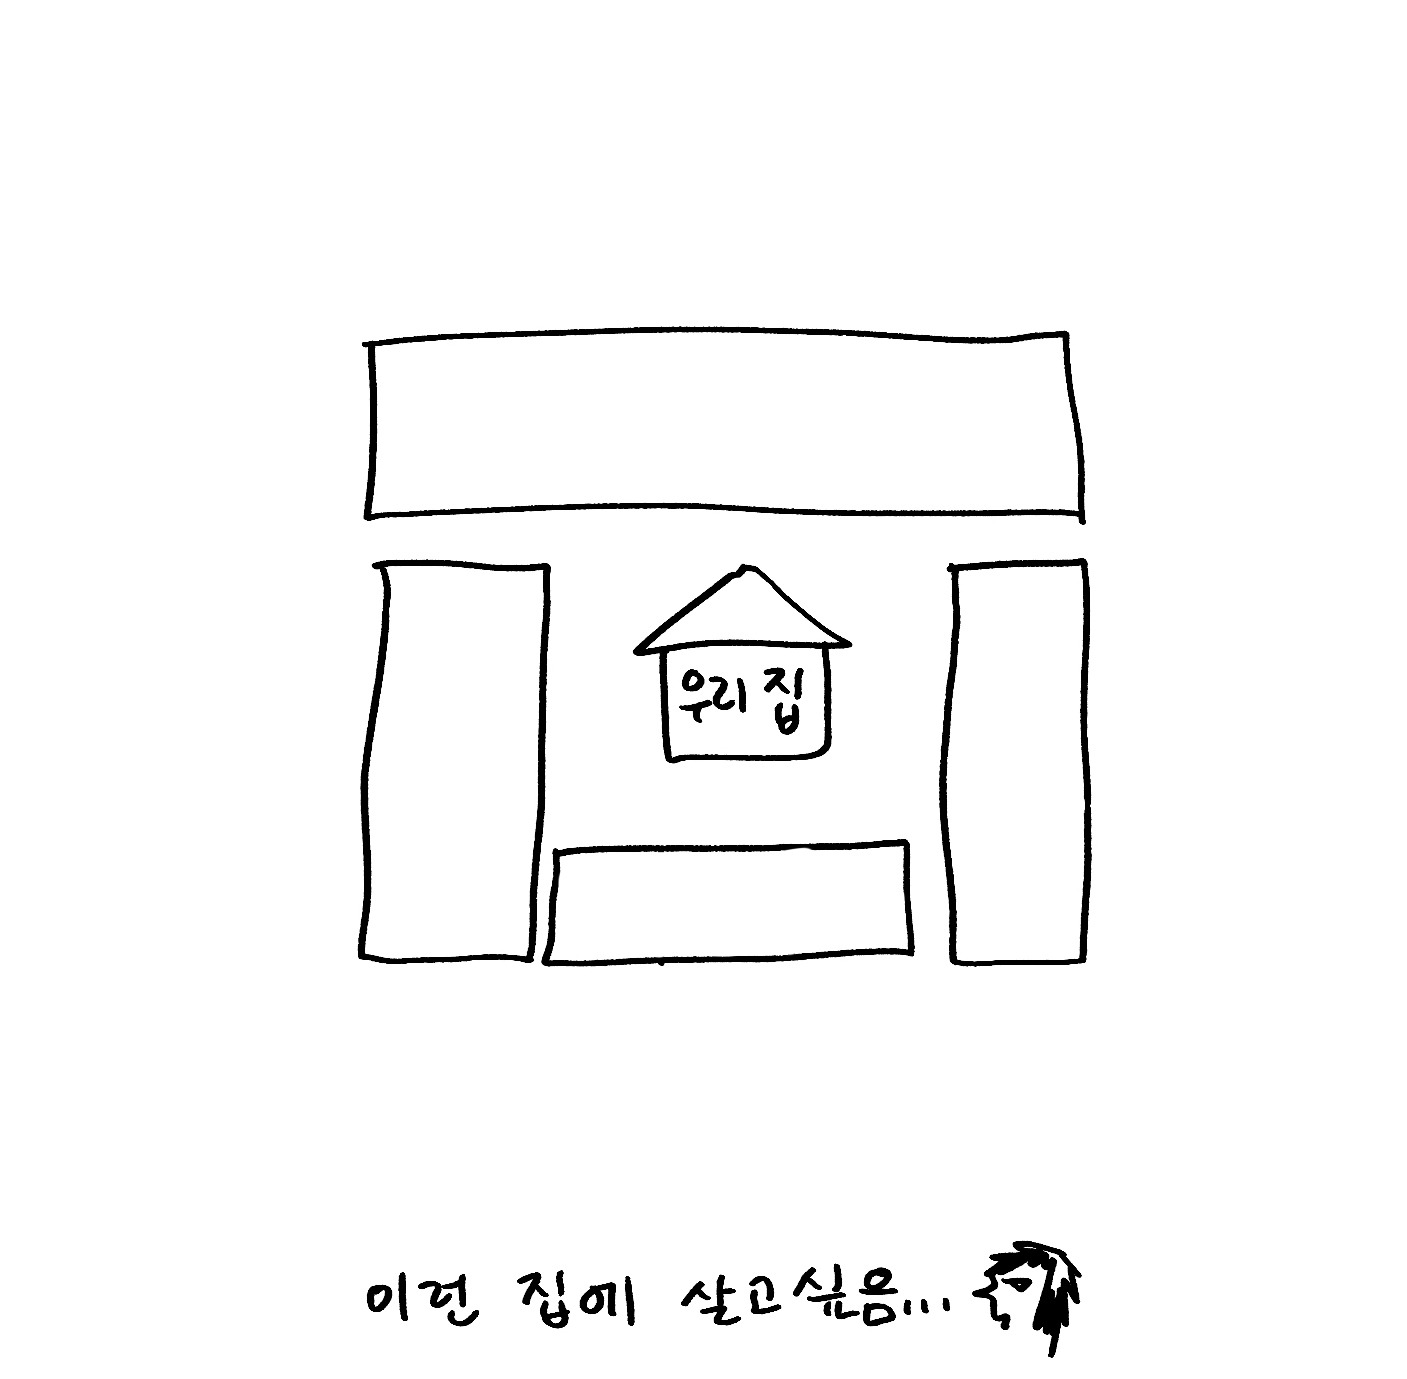 우리 집
이런 집에 살고싶음...